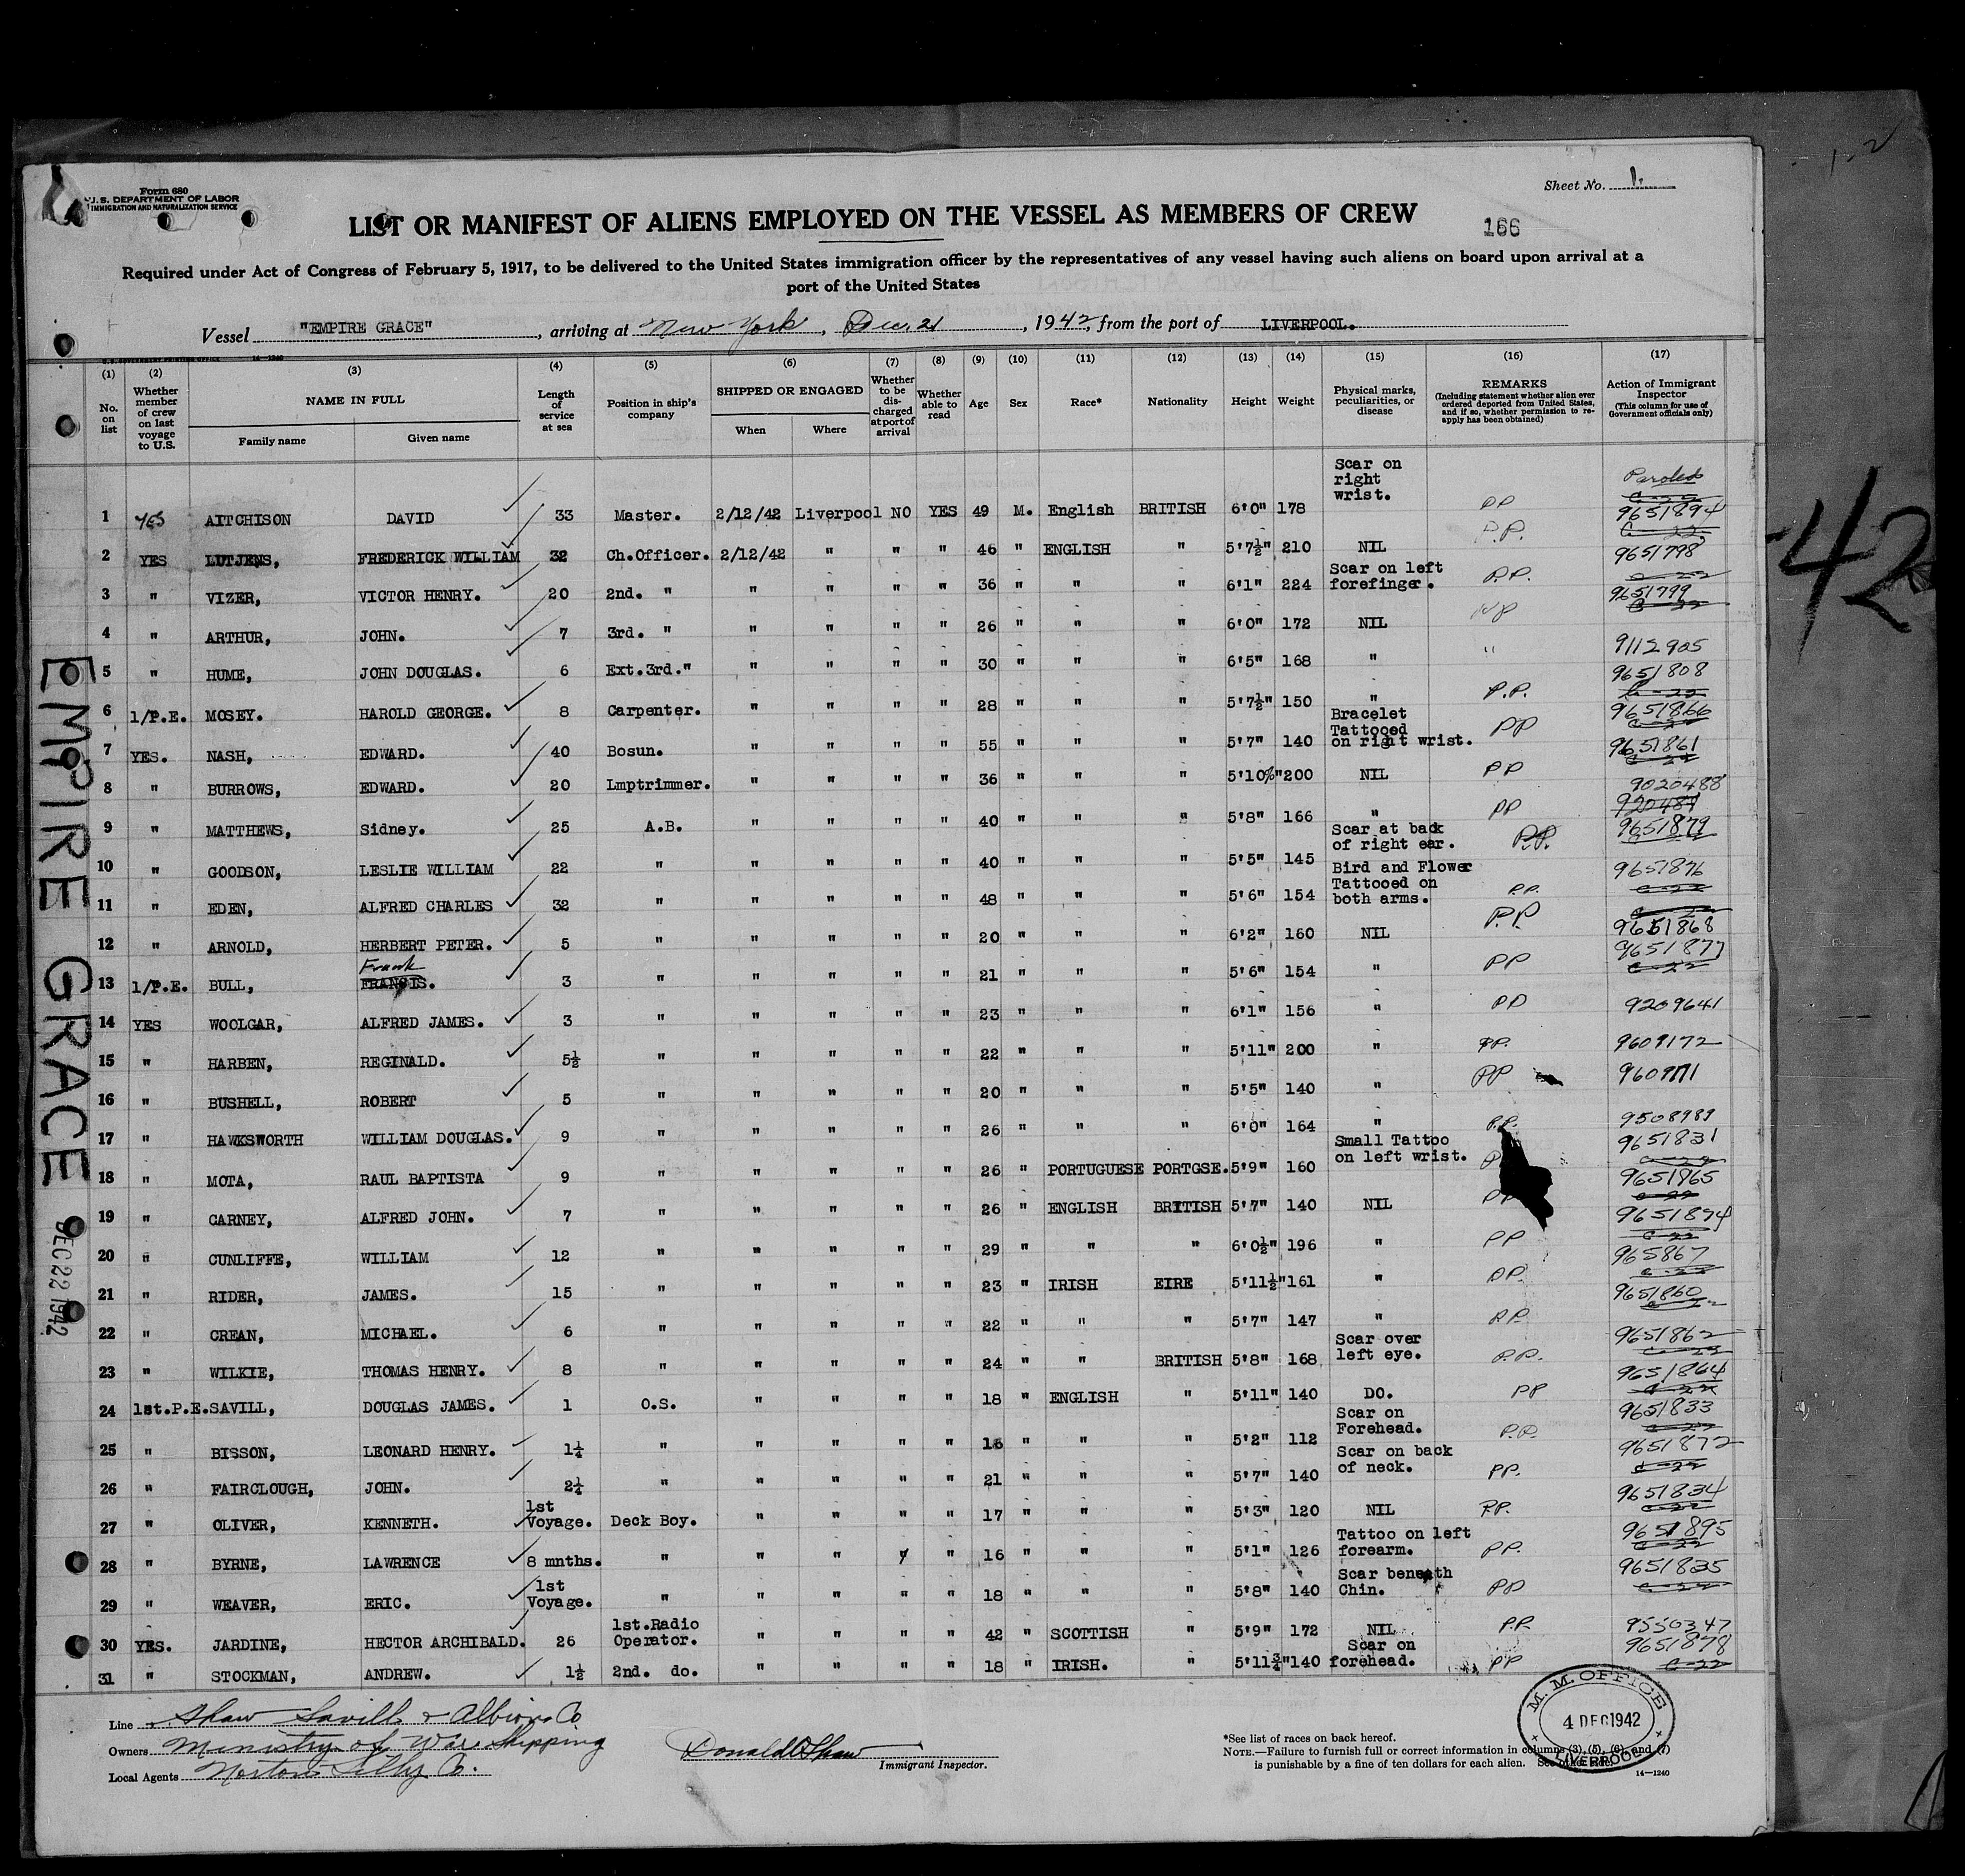 Form 680
U. S. DEPARTMENT OF LABOR
IMMIGRATION AND NATURALIZATION SERVICE
Sheet No. 1.
LIST OR MANIFEST OF ALIENS EMPLOYED ON THE VESSEL AS MEMBERS OF CREW
166
Required under Act of Congress of February 5, 1917, to be delivered to the United States immigration officer by the representatives of any vessel having such aliens on board upon arrival at a
port of the United States
Vessel "EMPIRE GRACE", arriving at New York, Dec. 21, 1942, from the port of LIVERPOOL.
(1) No. on list (2) Whether member of crew on last voyage to U.S. (3) NAME IN FULL Family name Given name (4) Length of service at sea (5) Position in ship's company (6) SHIPPED OR ENGAGED When Where (7) Whether to be discharged at port of arrival (8) Whether able to read (9) Age (10) Sex (11) Race* (12) Nationality (13) Height (14) Weight (15) Physical marks, peculiarities, or disease (16) REMARKS (Including statement whether alien ever ordered deported from United States, and if so, whether permission to reapply has been obtained) (17) Action of Immigrant Inspector (This column for use of Government officials only)
1 YES AITCHISON DAVID 33 Master. 2/12/42 Liverpool NO YES 49 M. English BRITISH 6'0" 178 Scar on right wrist. PP Paroled 9651894
2 YES LUTJENS, FREDERICK WILLIAM 32 Ch.Officer. 2/12/42 " " " 46 " ENGLISH " 5'7½" 210 NIL P.P. 9651798
3 " VIZER, VICTOR HENRY. 20 2nd. " " " " " 36 " " " 6'1" 224 Scar on left forefinger. P.P. 9651799
4 " ARTHUR, JOHN. 7 3rd. " " " " " 26 " " " 6'0" 172 NIL
5 " HUME, JOHN DOUGLAS. 6 Ext.3rd." " " " " 30 " " " 6'5" 168 " " 9112905
6 1/P.E. MOSEY. HAROLD GEORGE. 8 Carpenter. " " " " 28 " " " 5'7½" 150 " P.P. 9651808
7 YES. NASH, EDWARD. 40 Bosun. " " " " 55 " " " 5'7" 140 Bracelet Tattooed on right wrist. PP 9651866
8 " BURROWS, EDWARD. 20 Lmptrimmer. " " " " 36 " " " 5'10%" 200 NIL PP 9651861
9 " MATTHEWS, Sidney. 25 A.B. " " " " 40 " " " 5'8" 166 " PP 9020488
10 " GOODSON, LESLIE WILLIAM 22 " " " " " 40 " " " 5'5" 145 Scar at back of right ear. P.P. 9651879
11 " EDEN, ALFRED CHARLES 32 " " " " " 48 " " " 5'6" 154 Bird and Flower Tattooed on both arms. P.P. 9651876
12 " ARNOLD, HERBERT PETER. 5 " " " " " 20 " " " 6'2" 160 NIL P.P. 9651868
13 1/P.E. BULL, Frank FRANCIS. 3 " " " " " 21 " " " 5'6" 154 " PP 9651877
14 YES WOOLGAR, ALFRED JAMES. 3 " " " " " 23 " " " 6'1" 156 " PP 9209641
15 " HARBEN, REGINALD. 5½ " " " " " 22 " " " 5'11" 200 " PP. 9609172
16 " BUSHELL, ROBERT 5 " " " " " 20 " " " 5'5" 140 " PP 9609171
17 " HAWKSWORTH WILLIAM DOUGLAS. 9 " " " " " 26 " " " 6'0" 164 " P.P. 9508989
18 " MOTA, RAUL BAPTISTA 9 " " " " " 26 " PORTUGUESE PORTGSE. 5'9" 160 Small Tattoo on left wrist. 9651831
19 " CARNEY, ALFRED JOHN. 7 " " " " " 26 " ENGLISH BRITISH 5'7" 140 NIL PP 9651865
20 " CUNLIFFE, WILLIAM 12 " " " " " 29 " " " 6'0½" 196 " PP 9651874
21 " RIDER, JAMES. 15 " " " " " 23 " IRISH EIRE 5'11½" 161 " PP. 965867
22 " CREAN, MICHAEL. 6 " " " " " 22 " " " 5'7" 147 " PP. 9651860
23 " WILKIE, THOMAS HENRY. 8 " " " " " 24 " " BRITISH 5'8" 168 Scar over left eye. P.P. 9651862
24 1st.P.E. SAVILL, DOUGLAS JAMES. 1 O.S. " " " " 18 " ENGLISH " 5'11" 140 DO. PP 9651864
25 " BISSON, LEONARD HENRY. 1¼ " " " " " 16 " " " 5'2" 112 Scar on Forehead. P.P. 9651833
26 " FAIRCLOUGH, JOHN. 2¼ " " " " " 21 " " " 5'7" 140 Scar on back of neck. PP. 9651872
27 " OLIVER, KENNETH. 1st Voyage. Deck Boy. " " " " 17 " " " 5'3" 120 NIL P.P. 9651834
28 " BYRNE, LAWRENCE 8 mnths. " " " " " 16 " " " 5'1" 126 Tattoo on left forearm. PP. 9651895
29 " WEAVER, ERIC. 1st Voyage. " " " " " 18 " " " 5'8" 140 Scar beneath Chin. PP 9651835
30 YES. JARDINE, HECTOR ARCHIBALD. 26 1st.Radio Operator. " " " " 42 " SCOTTISH " 5'9" 172 NIL P.P. 9550347
31 " STOCKMAN, ANDREW. 1½ 2nd. do. " " " " 18 " IRISH. " 5'11¾" 140 Scar on forehead. PP 9651878
Line Shaw Savill & Albion Co
Owners Ministry of War Shipping
Local Agents Norton Lilly Co.
Donald Shaw
Immigrant Inspector.
*See list of races on back hereof.
NOTE.—Failure to furnish full or correct information in columns (3), (5), (6), and (7)
is punishable by a fine of ten dollars for each alien. See other side.
14—1240
M. M. OFFICE
4 DEC 1942
LIVERPOOL
EMPIRE GRACE
DEC 22 1942
42